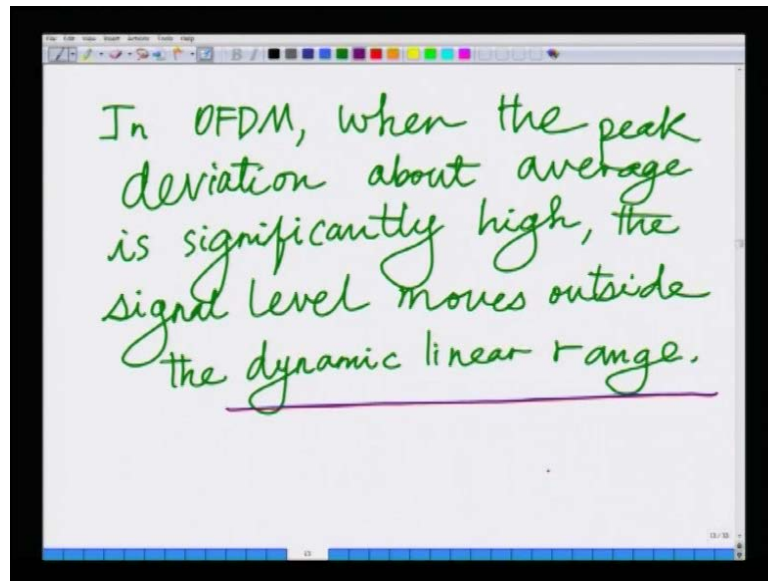 File Edit View Insert Actions Tools Help
In OFDM, when the peak
deviation about average
is significantly high, the
signal level moves outside
the dynamic linear range.